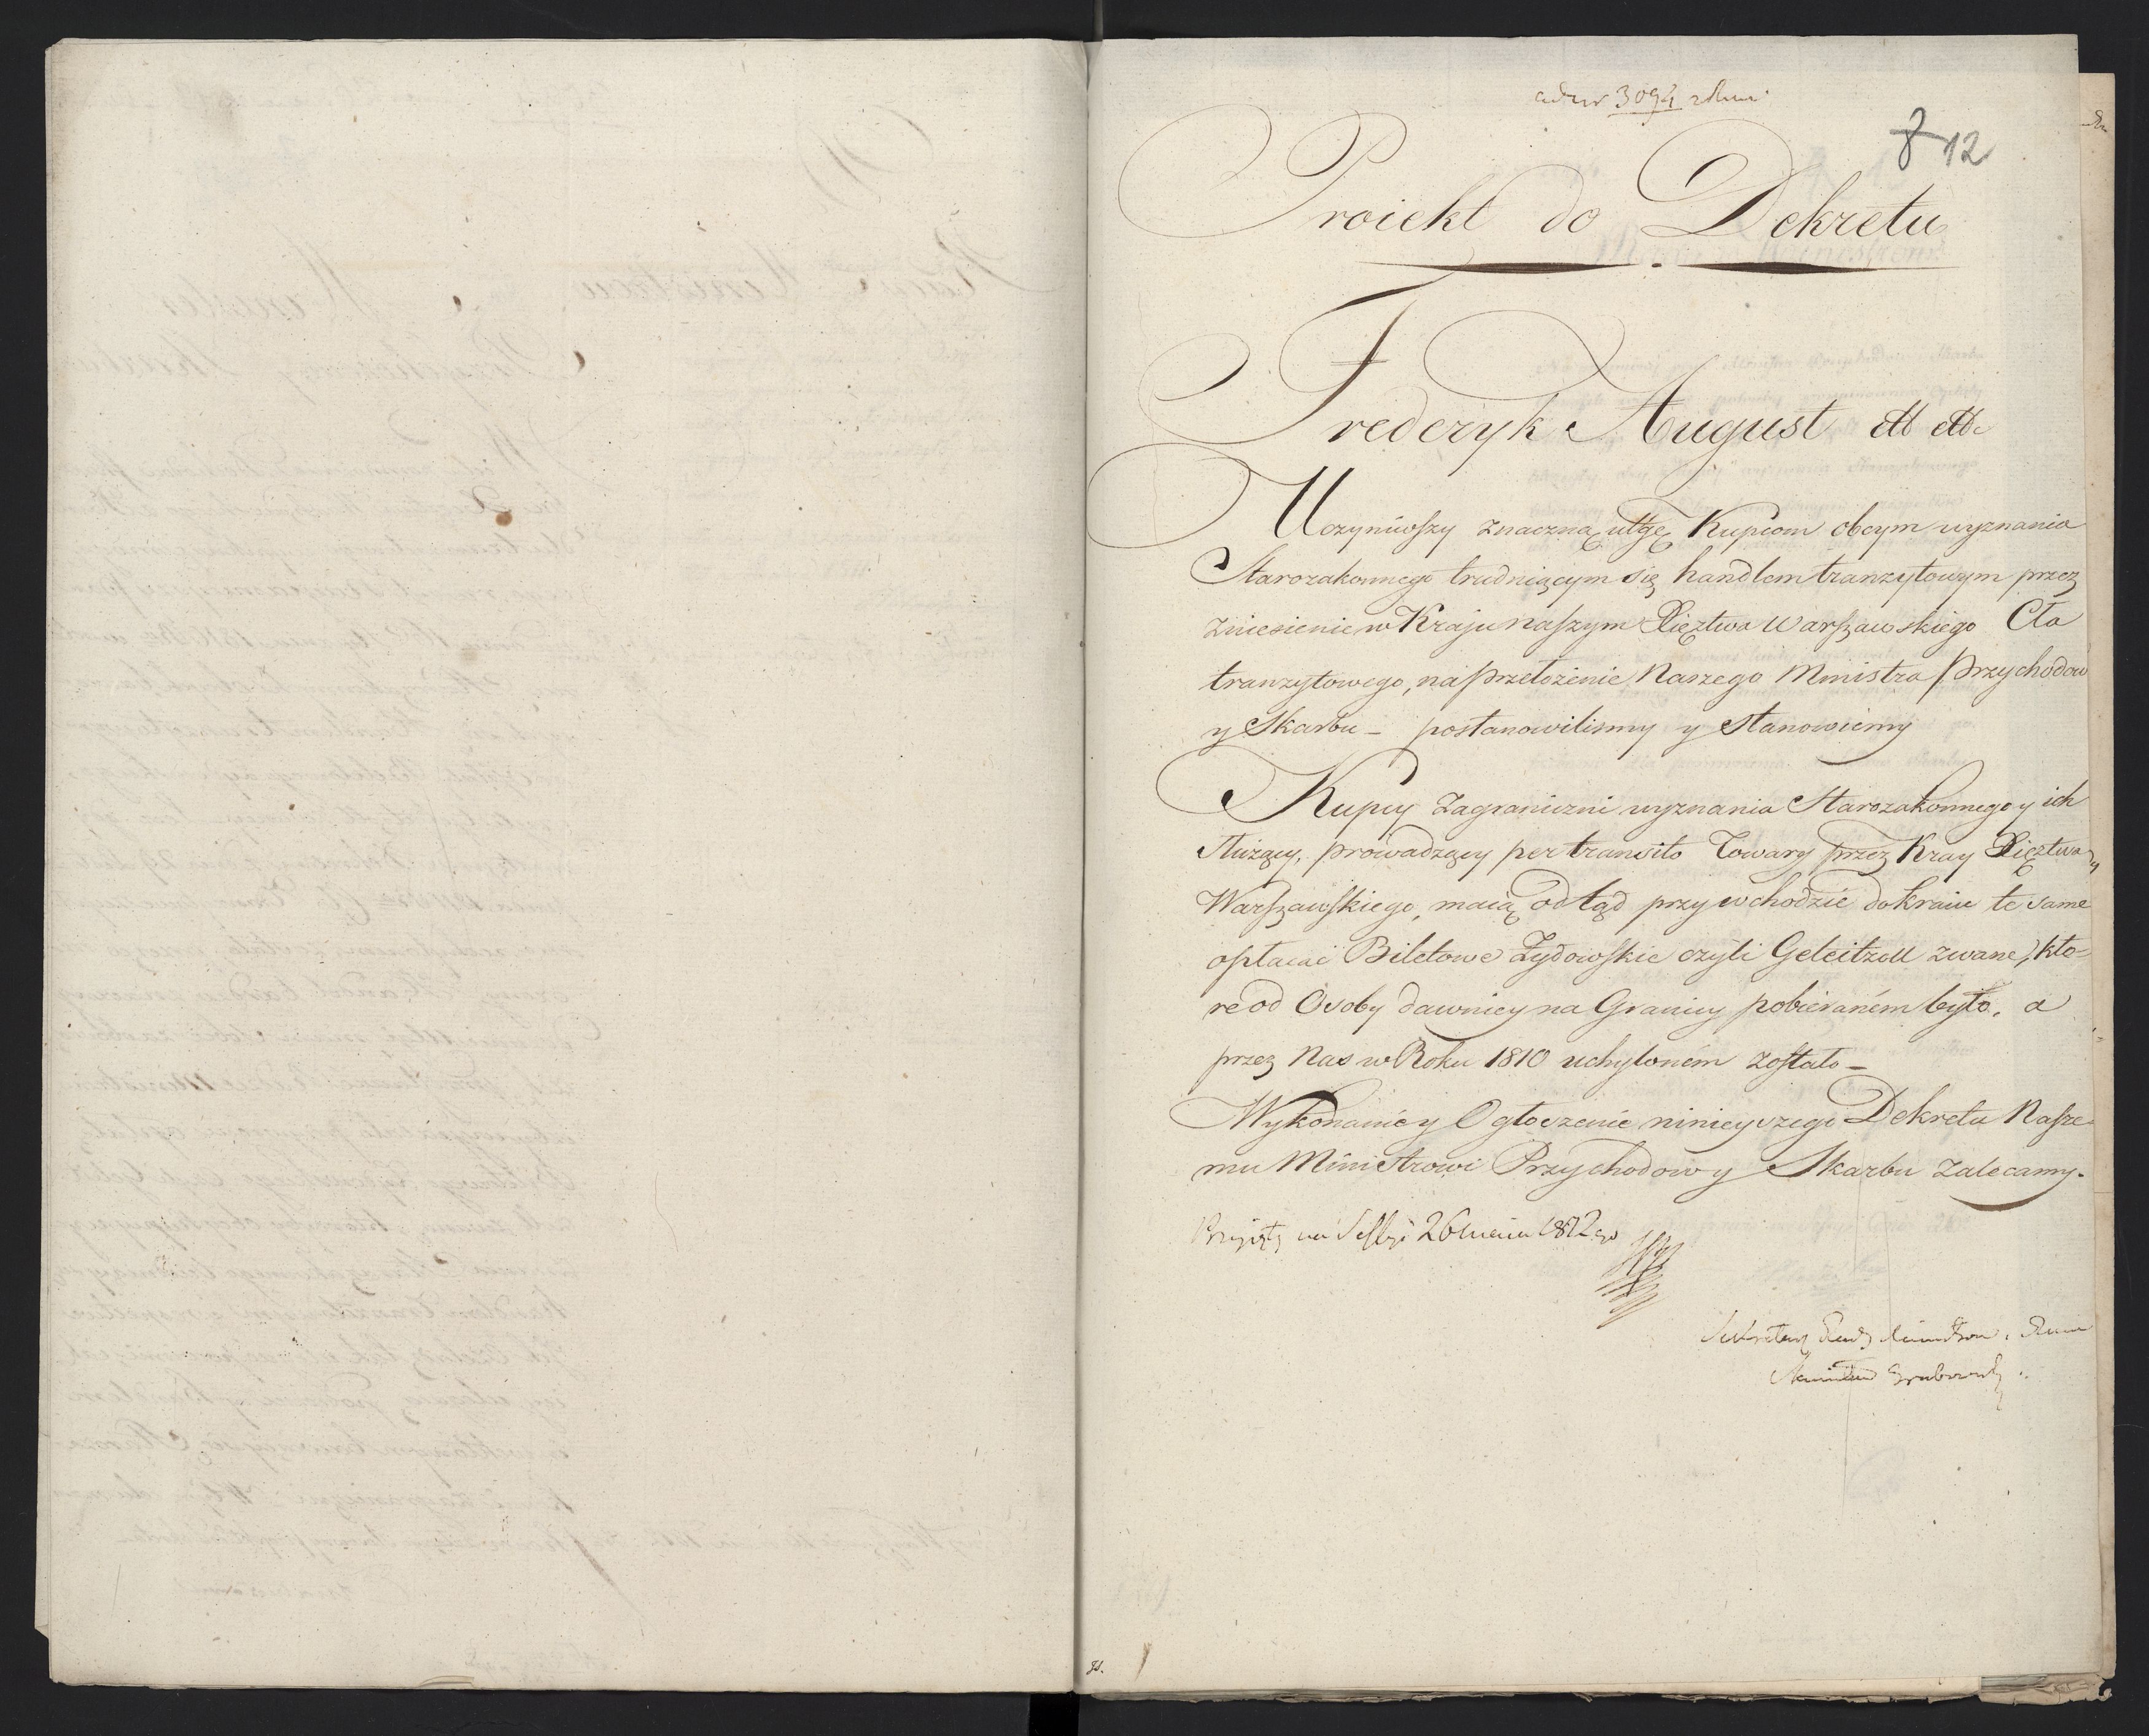 ad nr 3094
8 12
Proiekt do Dekretu
Frederyk August ett ett.
Uczyniwszy znaczną ulgę Kupcom obcym wyznania
Starozakonnego trudniącym się handlem tranzytowym przez
zniesienie w Kraju naszym Xięztwa Warszawskiego Cła
tranzytowego, na przełożenie Naszego Ministra Przychodów
y Skarbu – postanowilismy y Stanowiemy
Kupcy Zagraniczni wyznania Starozakonnego y ich
Służący, prowadzący per transito Towary przez Kray Xięztwa
Warszawskiego, maią odtąd przy wchodzie do kraiu te same
opłacać Biletowe Żydowskie czyli Geleitzoll zwane, kto-
re od Osoby dawniey na Granicy pobieraném było, a
przez Nas w Roku 1810 uchyloném zostało –
Wykonanie y Ogłoszenie ninieyszego Dekretu Nasze-
mu Ministrowi Przychodow y Skarbu zalecamy.
Przyięty na Sessyi 26 maia 1812 go
Sekretarz Rady Ministrow
Grabowski